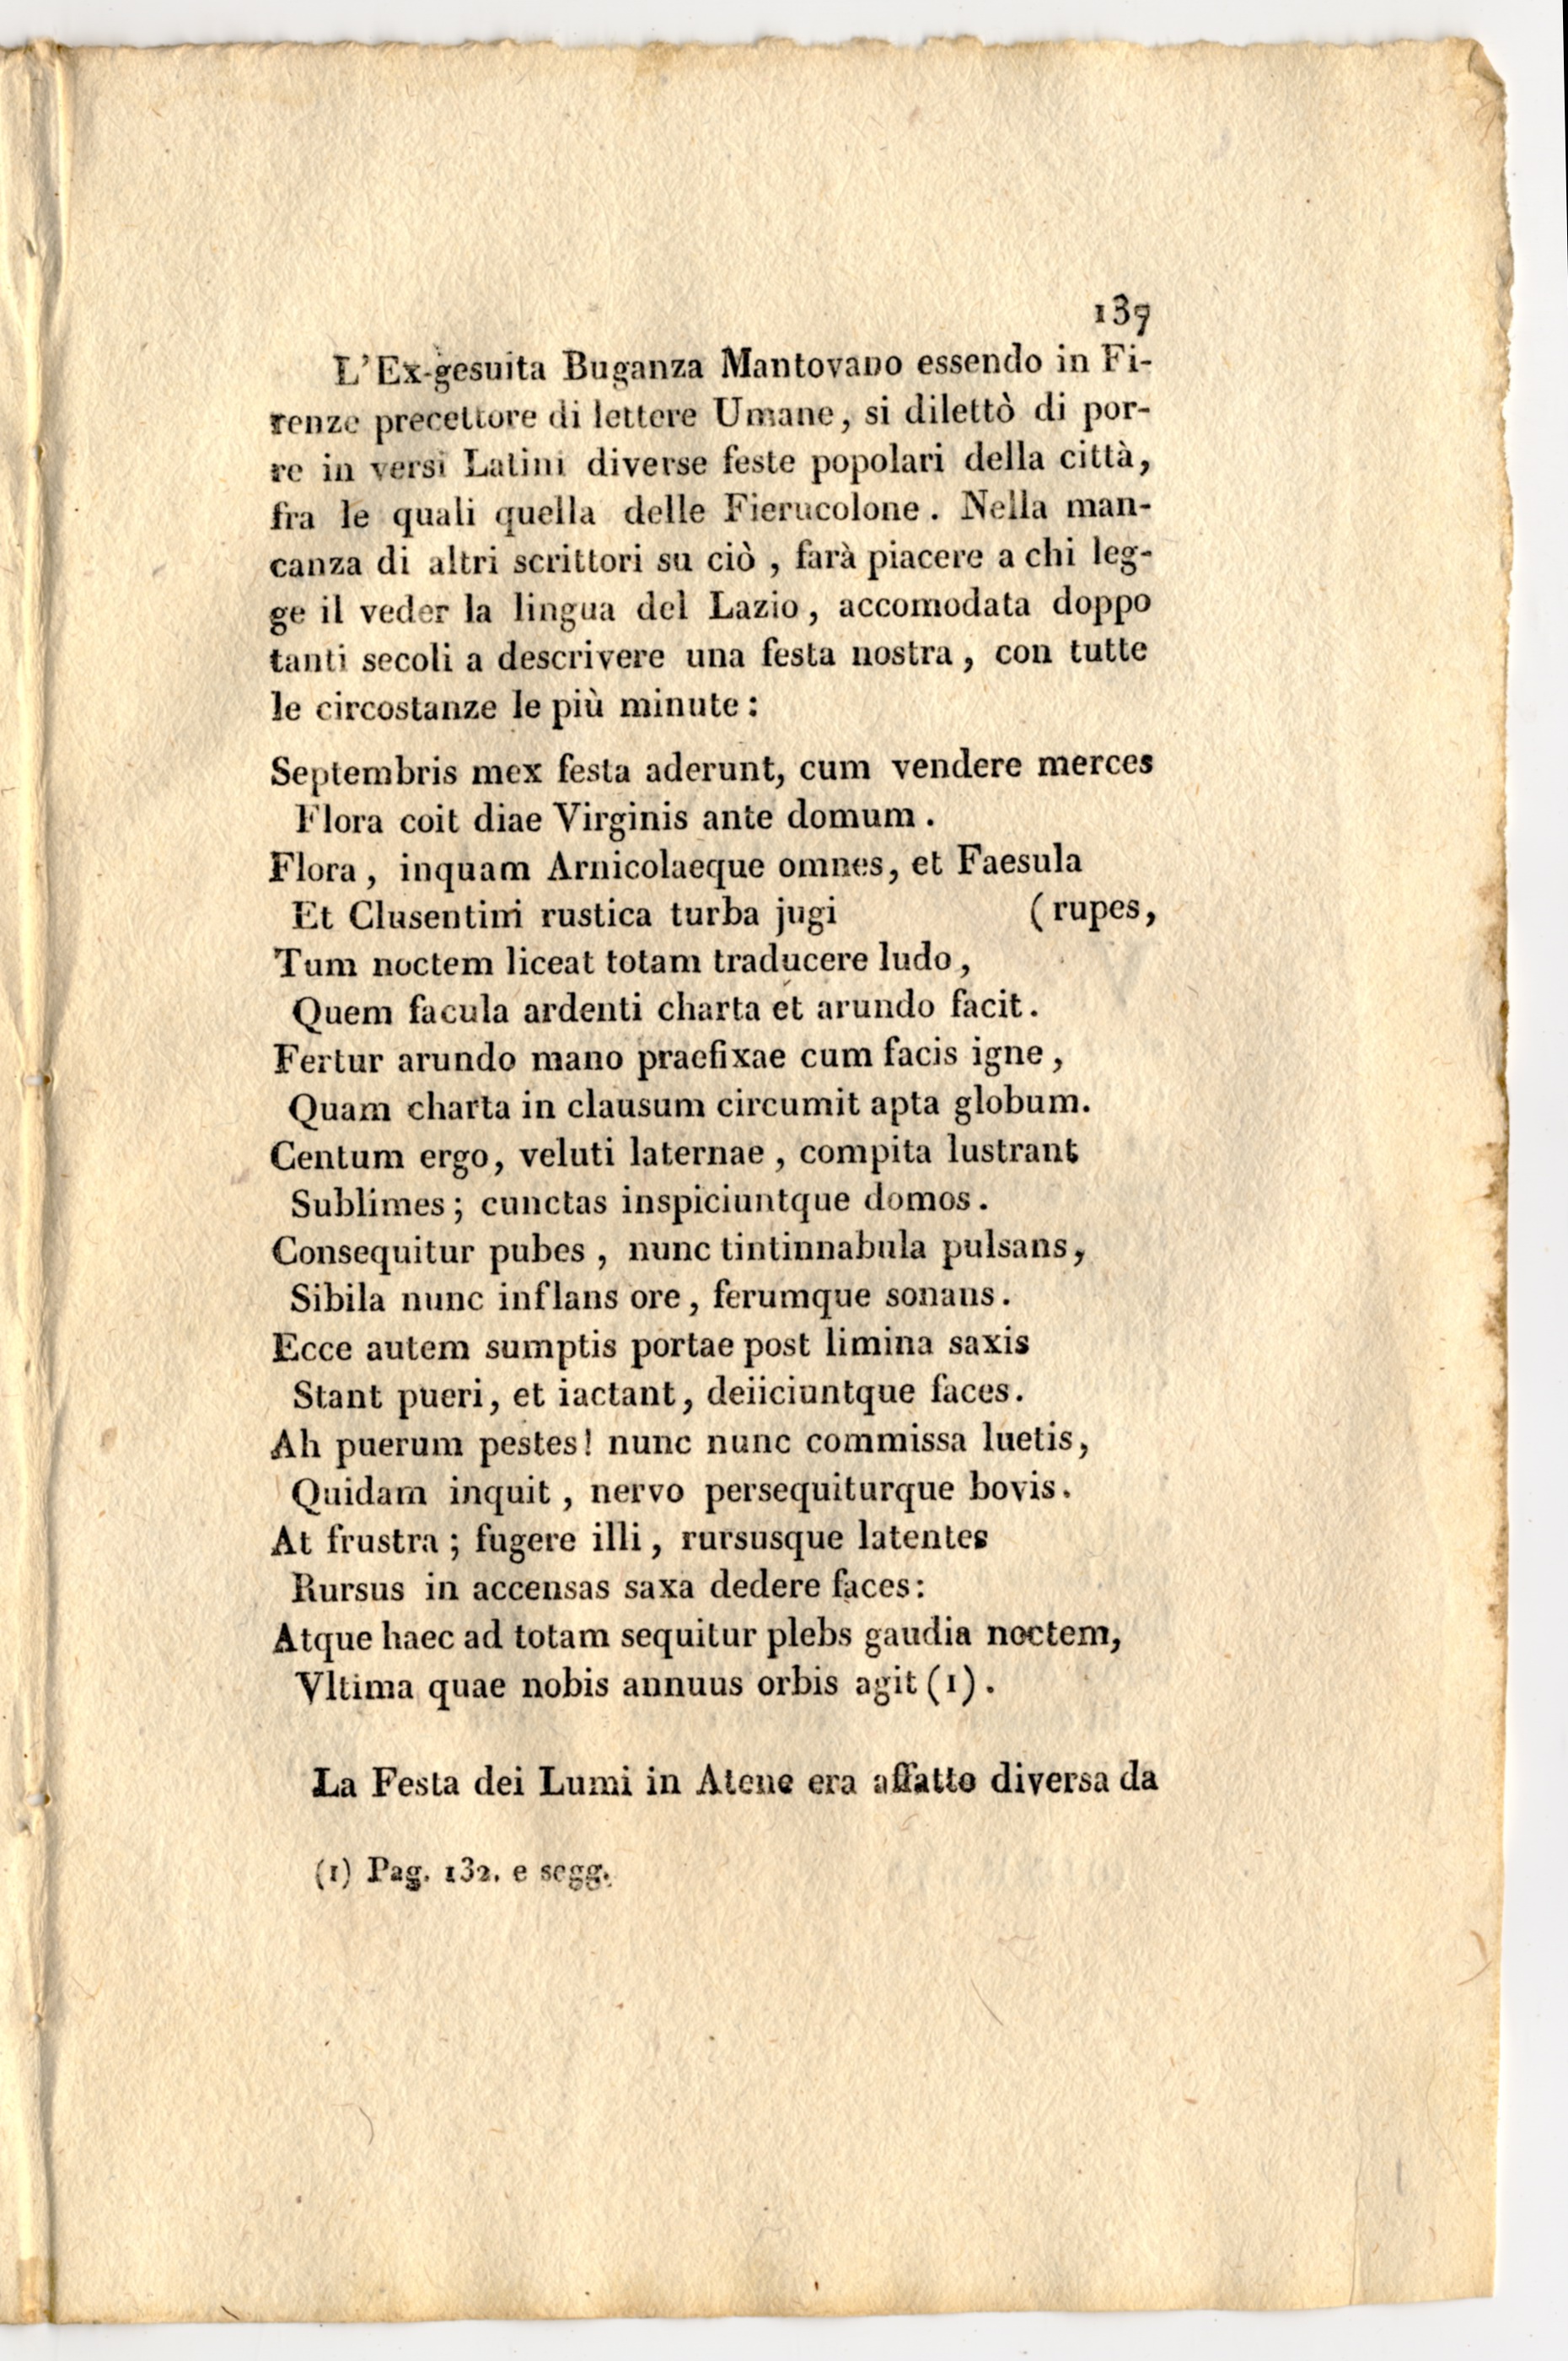 137
L'Ex-gesuita Buganza Mantovano essendo in Fi-
renze precettore di lettere Umane, si dilettò di por-
re in versi Latini diverse feste popolari della città,
fra le quali quella delle Fierucolone. Nella man-
canza di altri scrittori su ciò, farà piacere a chi leg-
ge il veder la lingua del Lazio, accomodata doppo
tanti secoli a descrivere una festa nostra, con tutte
le circostanze le più minute:
Septembris mex festa aderunt, cum vendere merces
Flora coit diae Virginis ante domum.
Flora, inquam Arnicolaeque omnes, et Faesula
Et Clusentini rustica turba jugi (rupes,
Tum noctem liceat totam traducere ludo,
Quem facula ardenti charta et arundo facit.
Fertur arundo mano praefixae cum facis igne,
Quam charta in clausum circumit apta globum.
Centum ergo, veluti laternae, compita lustrant
Sublimes; cunctas inspiciuntque domos.
Consequitur pubes, nunc tintinnabula pulsans,
Sibila nunc inflans ore, ferumque sonans.
Ecce autem sumptis portae post limina saxis
Stant pueri, et iactant, deiiciuntque faces.
Ah puerum pestes! nunc nunc commissa luetis,
Quidam inquit, nervo persequiturque bovis.
At frustra; fugere illi, rursusque latentes
Rursus in accensas saxa dedere faces:
Atque haec ad totam sequitur plebs gaudia noctem,
Vltima quae nobis annuus orbis agit (1).
La Festa dei Lumi in Atene era affatto diversa da
(1) Pag. 132. e segg.